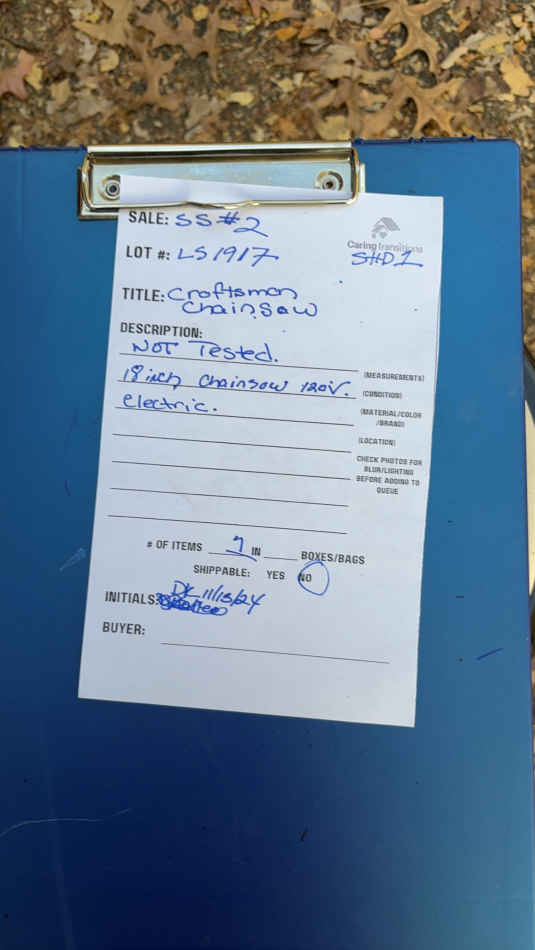 SALE: SS#2
Caring transitions
LOT #: LS1917
SHD1
TITLE: Craftsman
Chainsaw
DESCRIPTION:
NOT Tested.
(MEASUREMENTS)
18 inch Chainsaw 120V.
(CONDITION)
electric.
(MATERIAL/COLOR
/BRAND)
(LOCATION)
CHECK PHOTOS FOR
BLUR/LIGHTING
BEFORE ADDING TO
QUEUE
# OF ITEMS 1 IN ____ BOXES/BAGS
SHIPPABLE: YES NO
INITIALS: 11/13/24
BUYER: